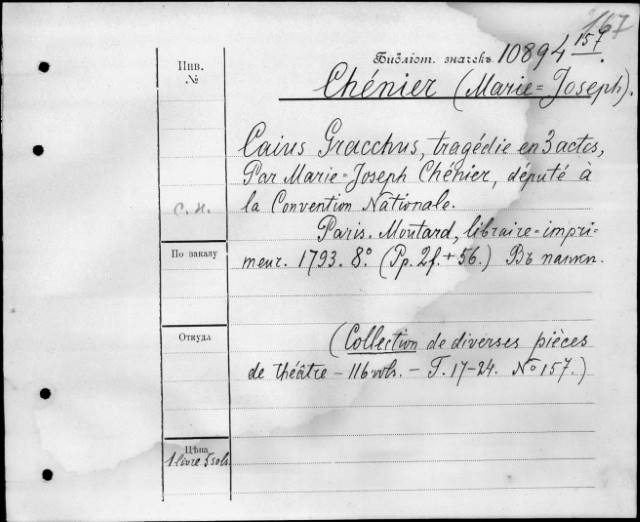 167
Библіот. значекъ 10894 157.
Инв.
№
Chénier (Marie=Joseph).
Caius Gracchus, tragédie en 3 actes,
Par Marie=Joseph Chénier, député à
la Convention Nationale.
с. н.
Paris. Moutard, libraire=impri-
meur. 1793. 8.° (Pp. 2f. + 56.) Въ папкп.
По заказу
Откуда
(Collection de diverses pièces
de théâtre – 116 vols. – T. 17–24. No 157.)
Цѣна
1 livre 5 sols.